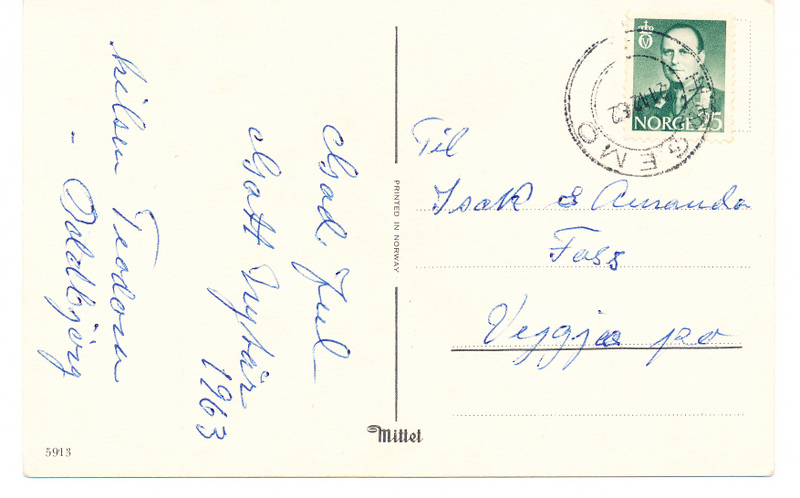 God Jul
Gott Nyttår
1963
Hilsen Teodor
- Oddbjørg
5913
PRINTED IN NORWAY
Mittet
NORGE
21.12.62
Til
Isak & Amanda
Foss
Veggja p.o